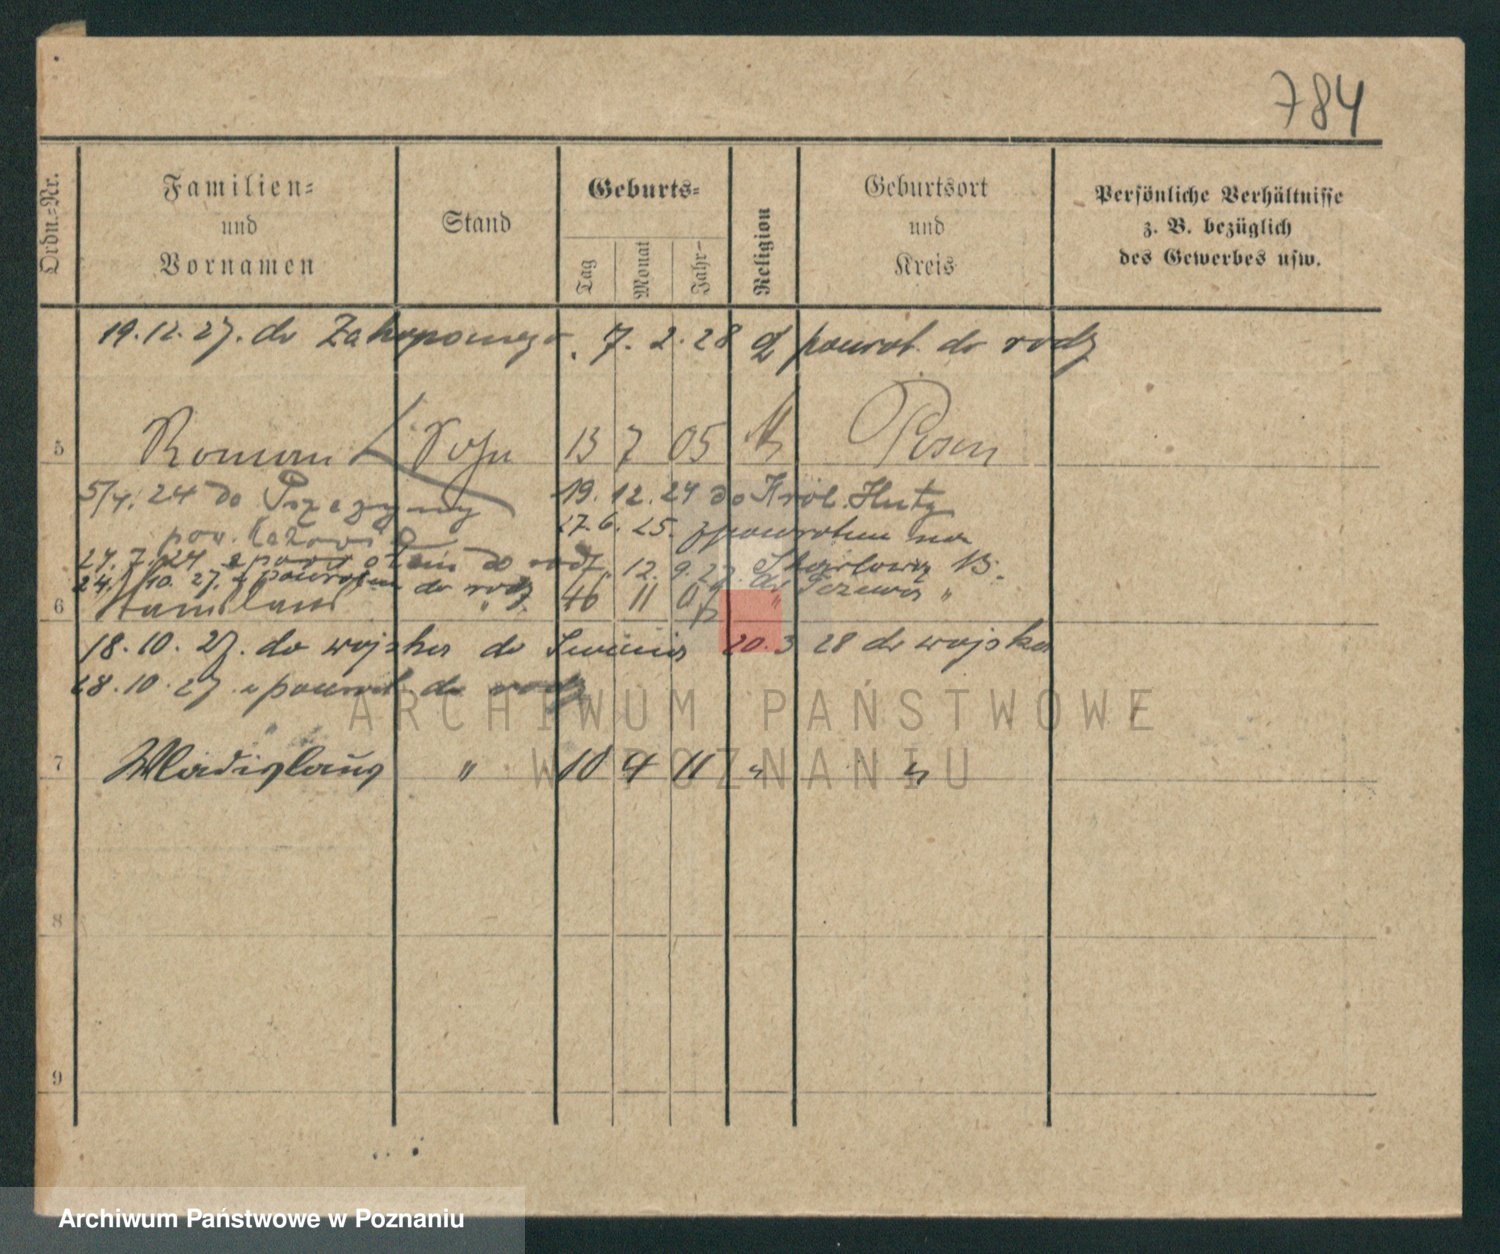 784
Ordn.-Nr.
Familien-
und
Vornamen
Stand
Geburts-
Tag
Monat
Jahr-
Religion
Geburtsort
und
Kreis
Persönliche Verhältnisse
z. B. bezüglich
des Gewerbes usw.
19.12.27. do Zakopanego. 7.2.28 z powrot. do rodz
5 Roman Sohn 13 7 05 Posen
5/4. 24 do
19.12.24 do Król. Huty
pow.
27.6.25. z powrotem na
27.7.24 z powrotem do rodz. 12.9.27.
24. 10. 27. z powrotem do rodz
6 Stanislaus " 16 11 07 " "
18.10.27. do wojska do 20.3 28 do wojska
28.10.27 z powrot do rodz
7 Wladislaus " 10 4 11 " "
8
9
ARCHIWUM PAŃSTWOWE
W POZNANIU
Archiwum Państwowe w Poznaniu